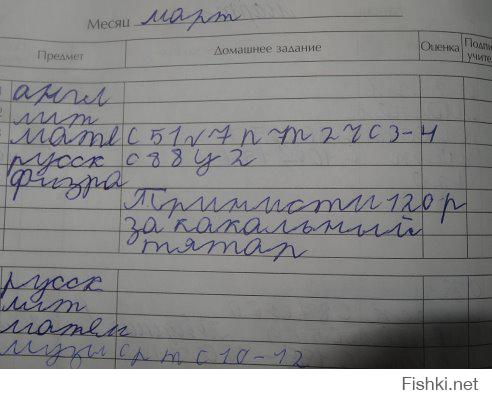 Месяц март
Предмет Домашнее задание Оценка Подпи учите
англ
лит
мате с 51 √ 7 п 7т 2 ч с 3-4
русск с 88 у 2
физра
Принисти 120 р
за какальный
тятар
русск
лит
матем
музы с р т с 10-12
Fishki.net